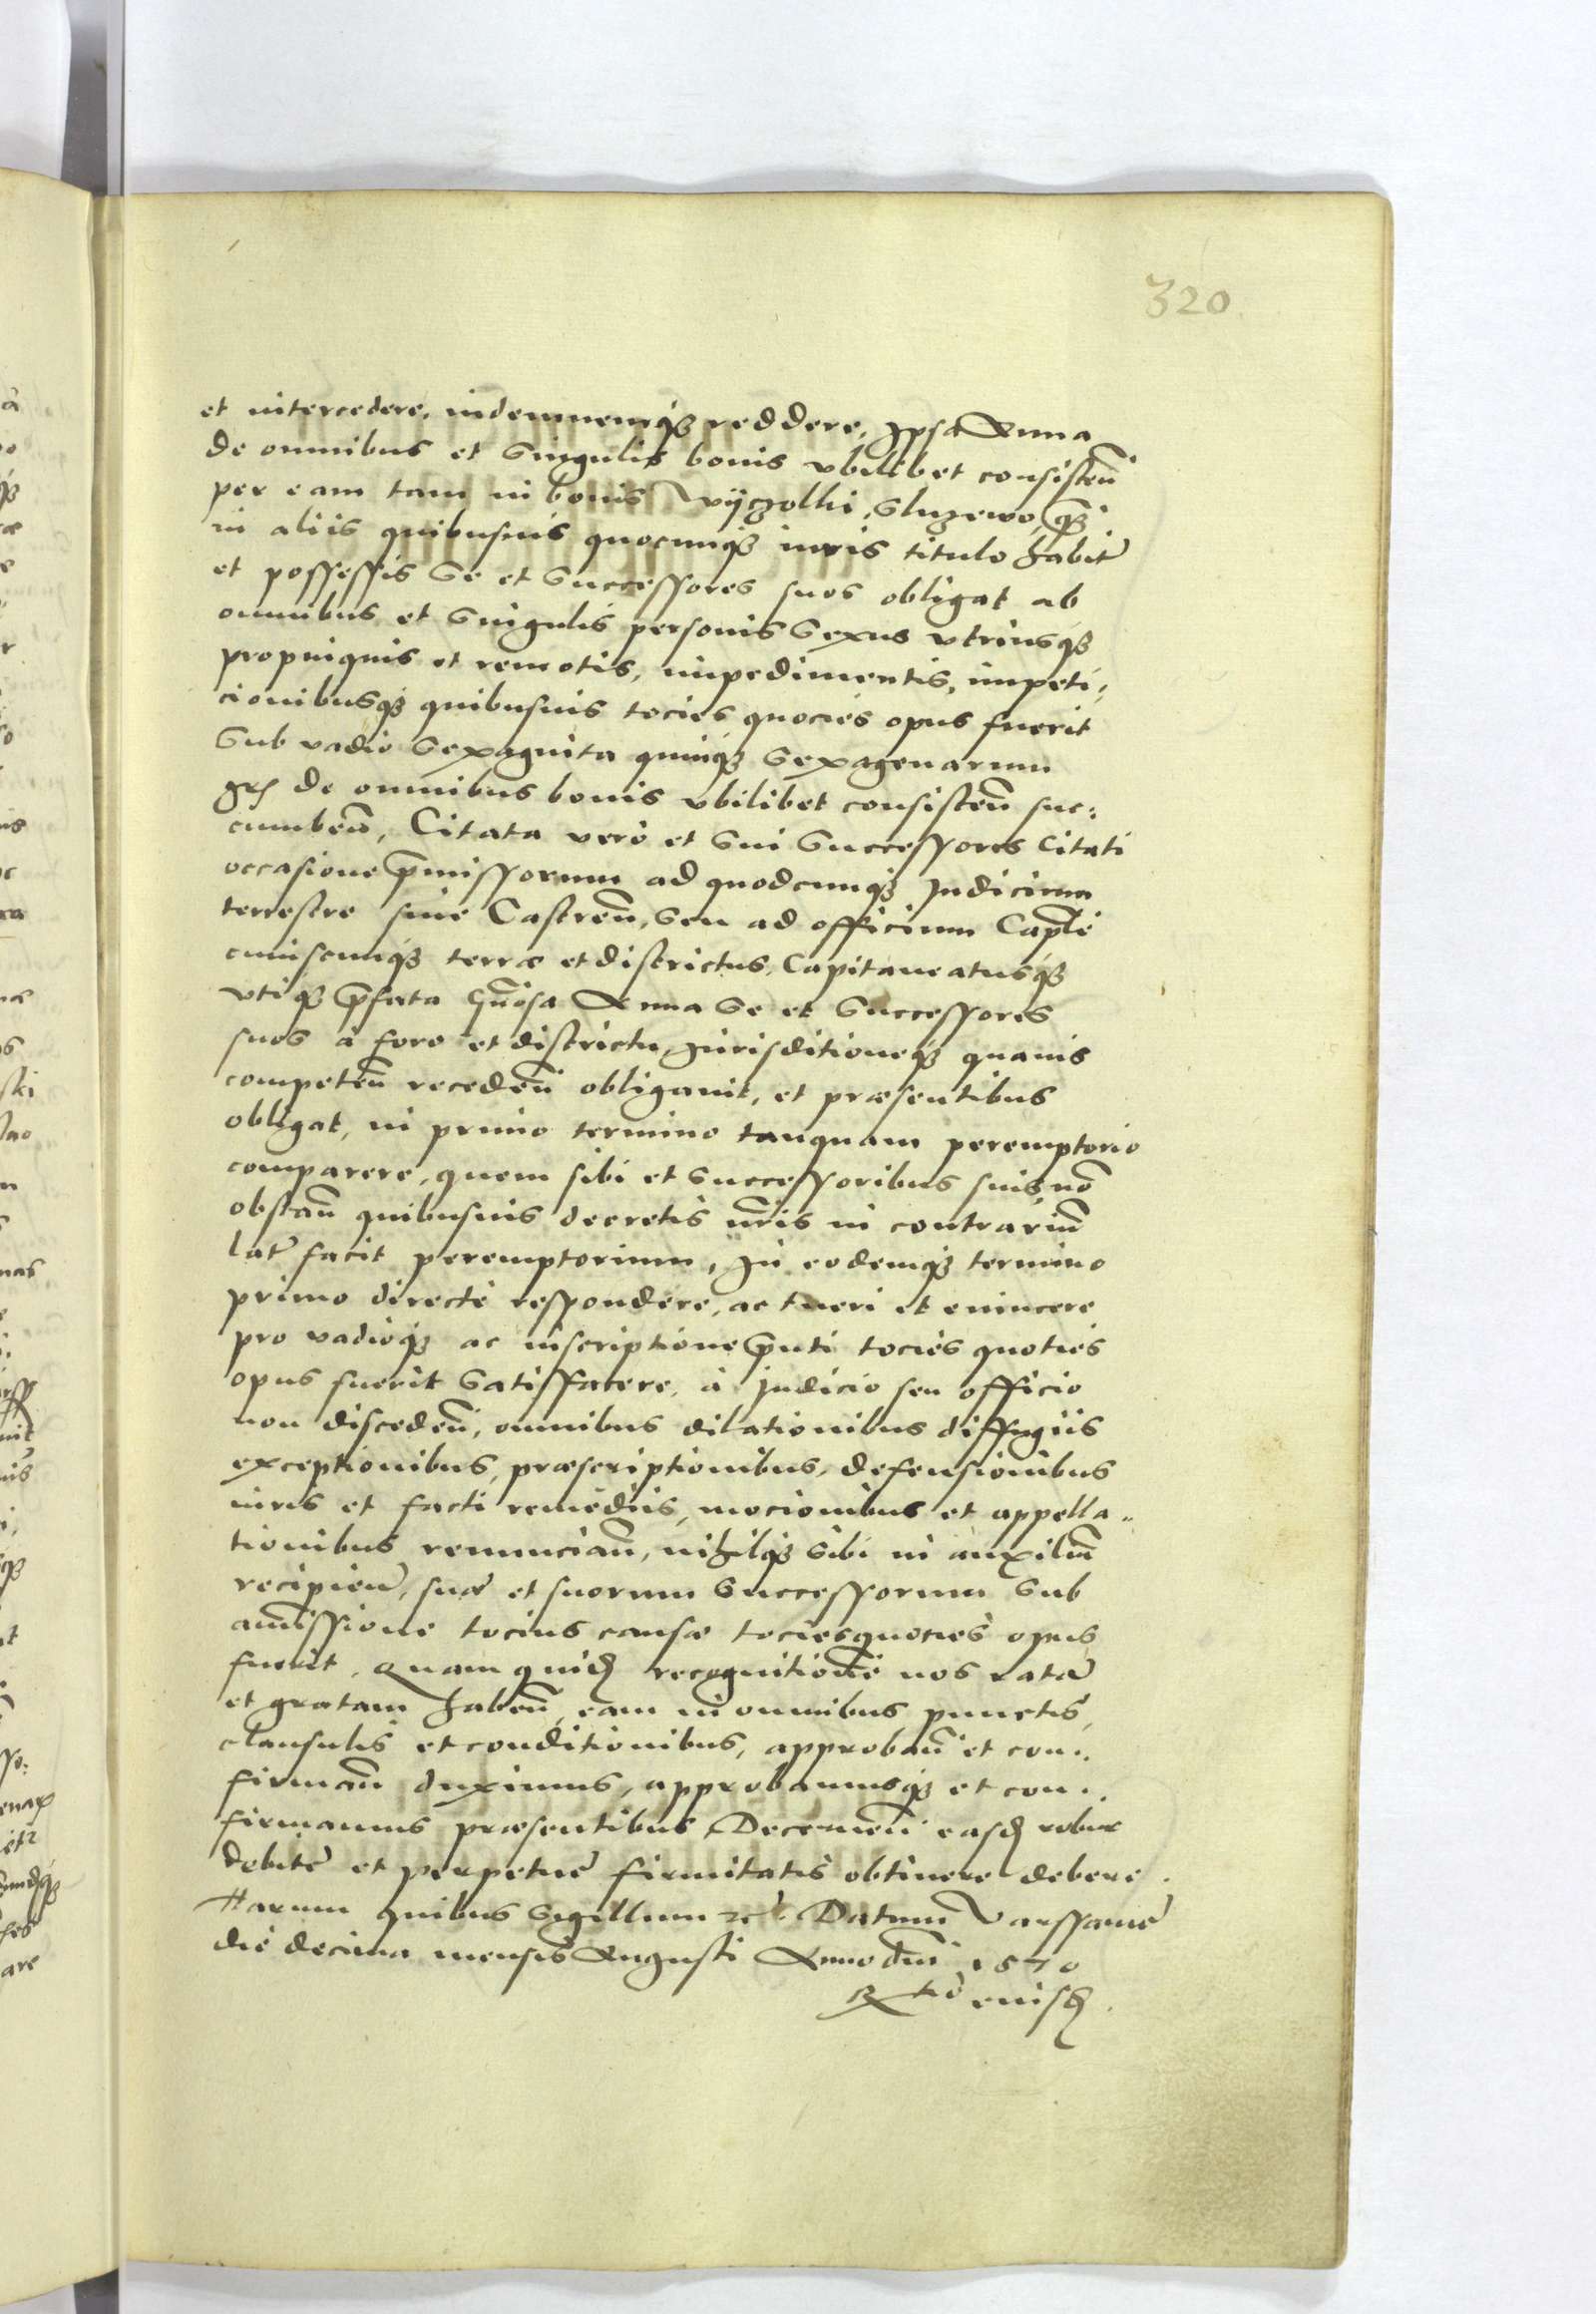 320
et intercedere, indemnemq₃ reddere, Ipsa Anna
de omnibus et singulis bonis vbilibet consisteñ
per eam tam in bonis Vÿczolki, Sluzewo, q̃₃
in aliis quibusuis quocunq₃ iuris titulo habit̃
et possessis se et successores suos obligat ab
omnibus et singulis personis sexus vtriusq₃
propinquis et remotis, impedimentis, impeti⸗
cionibusq₃ quibusuis tocies quocies opus fuerit
sub vadio sexaginta quinq₃ sexagenarum
gr̃ de omnibus bonis vbilibet consisteñ suc⸗
cumbeñ, Citata vero et sui successores Citati
occasione p̃missorum ad quodcunq₃ Iudicium
terrestre siue Castreñ, seu ad officium Capt̃i
cuiuscunq₃ terræ et districtus, Capitaneatusq₃
vtiq₃ p̃fata G̃nosa Anna se et successores
suos à foro et districtu Iurisditioneq₃ quauis
competeñ recedeñ obligauit, et præsentibus
obligat, in primo termino tanquam peremptorio
comparere, quem sibi et successoribus suis, nõ
obstañ quibusuis decretis nr̃is in contrariũ
lat̃ facit peremptorium, In eodemq₃ termino
primo directè respondere, ac tueri et euincere
pro vadioq₃ ac inscriptione p̃nti tocies quoties
opus fuerit satisfacere, à Iudicio seu officio
non discedeñ, omnibus dilationibus diffugiis
exceptionibus, præscriptionibus, defensionibus
iuris et facti remediis, mocionibus et appella⸗
tionibus renunciañ, nihilq₃ sibi in auxiliũ
recipieñ, suæ et suorum successorum sub
amissione tocius causæ tociesquoties opus
fuerit. Quam quid̃ recognitionẽ nos ratã
et gratam habeñ, eam in omnibus punctis,
clausulis et conditionibus, approbañ et con⸗
firmañ duximus, approbamusq₃ et con⸗
firmamus præsentibus, Decerneñ easd̃ robur
debitæ et perpetuæ firmitatis obtinere debere.
Harum quibus sigillum etc̃. Datum Varssauiæ
die decima mensis Augusti Anno dñi 1570
Rtio eiusd̃.